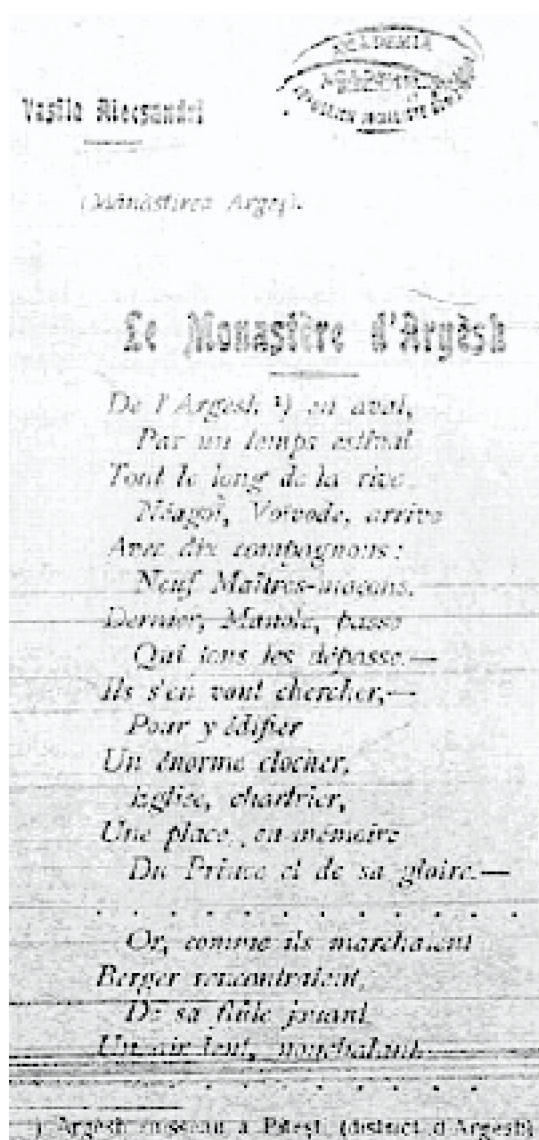 ACADEMIA
Vasile Alecsandri
(Mănăstirea Argeș).
Le Monastère d'Argèsh
De l'Argesh ¹) en aval,
Par un temps estival
Tout le long de la rive
Néagoï, Voïvode, arrive
Avec dix compagnons:
Neuf Maîtres-maçons.
Dernier, Manole, passe
Qui tous les dépasse.—
Ils s'en vont chercher,—
Pour y édifier
Un énorme clocher,
Eglise, chartrier,
Une place, en mémoire
Du Prince et de sa gloire.—
Or, comme ils marchaient
Berger rencontraient,
De sa flûte jouant
Un air lent, nonchalant.
¹) Argèsh ruisseau à Pitești (district d'Argesh)